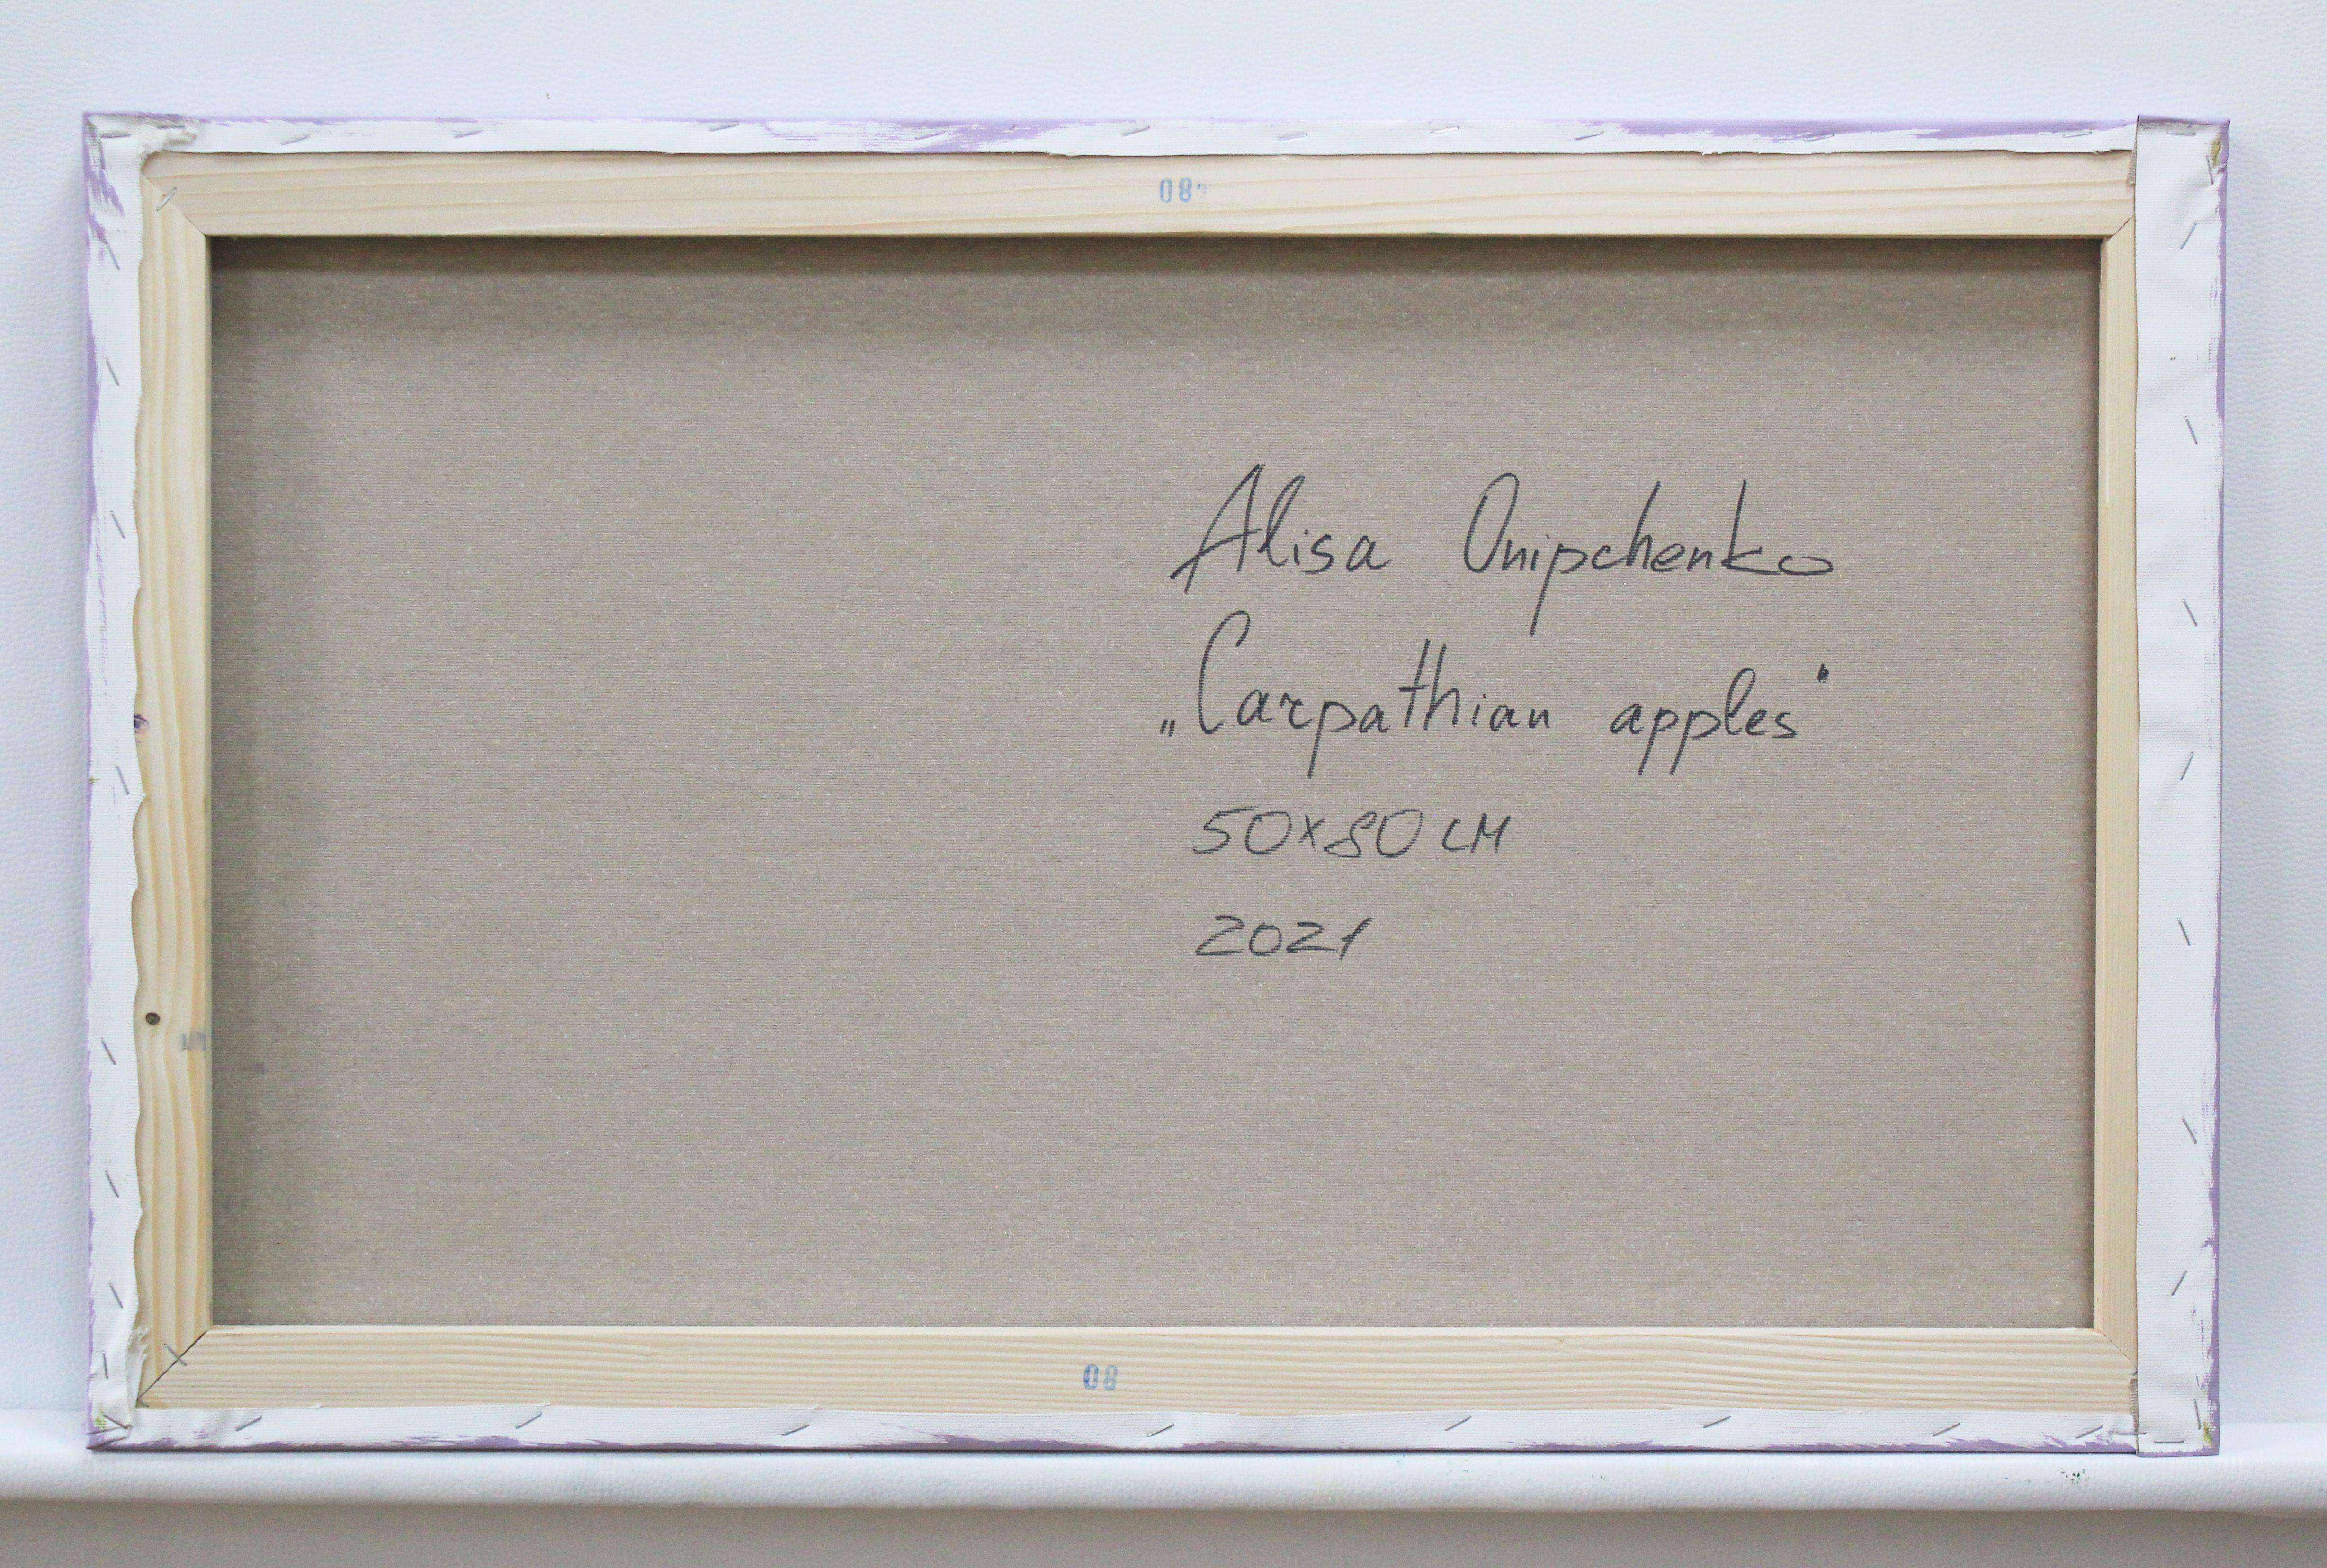 80
Alisa Onipchenko
„Carpathian apples"
50x80 см
2021
80